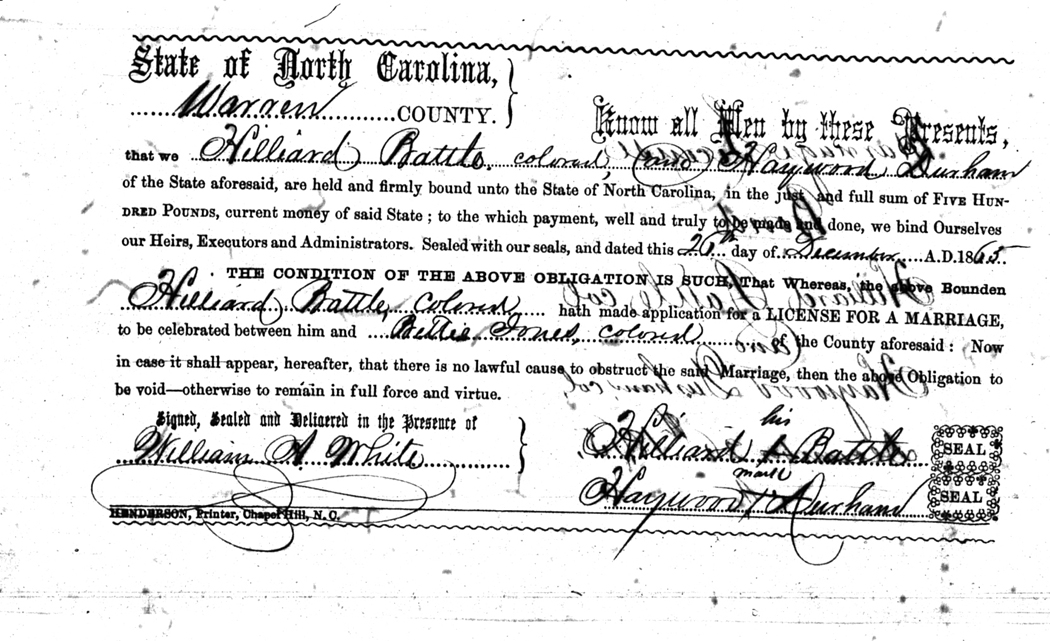 State of North Carolina,
Warren COUNTY.
Know all Men by these Presents,
that we Hilliard Battle, colored, and Haywood Durham
of the State aforesaid, are held and firmly bound unto the State of North Carolina, in the just and full sum of FIVE HUN-
DRED POUNDS, current money of said State; to the which payment, well and truly to be made and done, we bind Ourselves
our Heirs, Executors and Administrators. Sealed with our seals, and dated this 26th day of December A.D. 1865.
THE CONDITION OF THE ABOVE OBLIGATION IS SUCH, That Whereas, the above Bounden
Hilliard Battle, colored hath made application for a LICENSE FOR A MARRIAGE,
to be celebrated between him and Bettie Jones, colored of the County aforesaid: Now
in case it shall appear, hereafter, that there is no lawful cause to obstruct the said Marriage, then the above Obligation to
be void—otherwise to remain in full force and virtue.
Signed, Sealed and Delivered in the Presence of
William A White
his
Hilliard Battle SEAL
mark
Haywood Durham SEAL
HENDERSON, Printer, Chapel Hill, N. C.